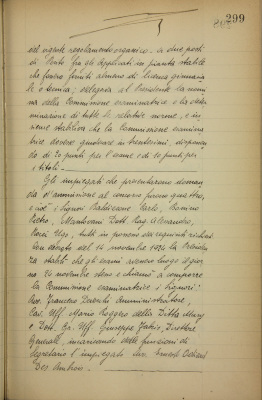 299
del vigente regolamento organico - a due posti
di fra gli applicati in pianta stabile
che fossero forniti almeno di licenza ginnasia
le o tecnica; delegava al Presidente la nomi
na della Commissione esaminatrice e la deter
minazione di tutte le relative norme, e in
sieme stabiliva che la Commissione esamina
trice dovesse giudicare in trentesimi, disponen
do di 20 punti per l'esame e di 10 punti per
i titoli.-
Gli impiegati che presentarono doman
da d'ammissione al concorso furono quattro,
e cioè i Signori Carlo,
Pietro, Mantovani Dott. Rag. Alessandro,
Ugo, tutti in possesso dei requisiti richiesti.
Con del 14 novembre 1924 la Presiden
za stabilì che gli esami avessero luogo il gior
no 20 novembre stesso e chiamò a comporre
la Commissione esaminatrice i Signori:
Avv. Francesco Amministratore,
Cav. Uff. Mario Ruggero della Ditta
e Dott. Gr. Uff. Giuseppe Direttore
Generale, incaricando delle funzioni di
Segretario l'impiegato
Des Ambrois.